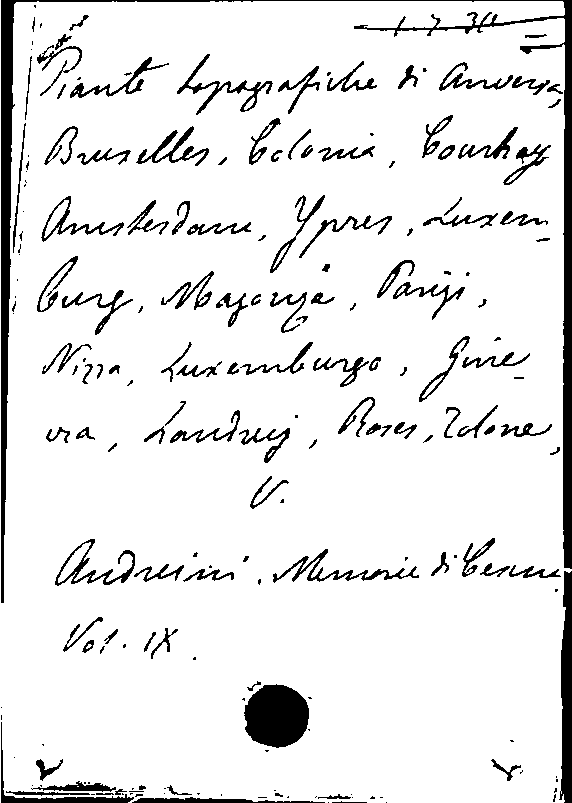 1. 7. 30
Piante topografiche di Anversa,
Bruselles, Colonia, Courtray
Amsterdam, Ypres, Luxem-
burg, Magonza, Parigi,
Nizza, Luxemburgo, Gine-
vra, Landrey, Roses, Tolone,
V.
Andreini. Memorie di Cesena
Vol. IX.